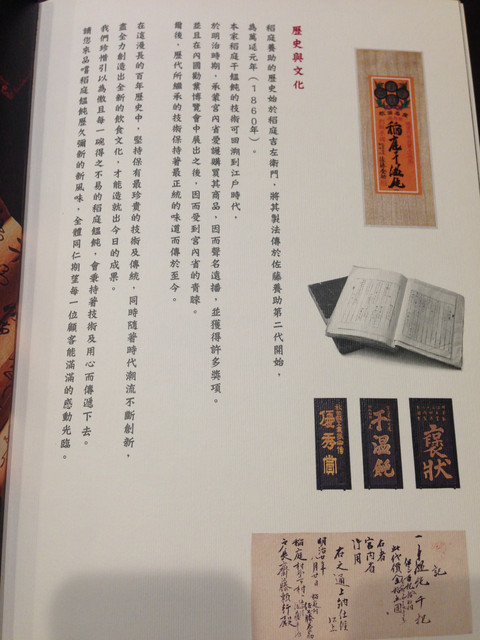 歷史與文化
稻庭養助的歷史始於稻庭吉左衛門，將其製法傳於佐藤養助第二代開始，
為萬延元年（1860年）。
本家稻庭干饂飩的技術可回溯到江戶時代，
於明治時期，承蒙宮內省愛護購買其商品，因而聲名遠播，並獲得許多獎項。
並且在內國勸業博覽會中展出之後，因而受到宮內省的青睞。
爾後，歷代所繼承的技術保持著最正統的味道而傳於至今。
在這漫長的百年歷史中，堅持保有最珍貴的技術及傳統，同時隨著時代潮流不斷創新，
盡全力創造出全新的飲食文化，才能造就出今日的成果。
我們珍惜引以為傲且每一碗得之不易的稻庭饂飩，會秉持著技術及用心而傳遞下去。
請您來品嚐稻庭饂飩歷久彌新的新風味，全體同仁期望每一位顧客能滿滿的感動光臨。
稻庭干饂飩
褒狀
干温飩
優秀賞
記
宮內省
御用
右之通上納仕候
以上
明治